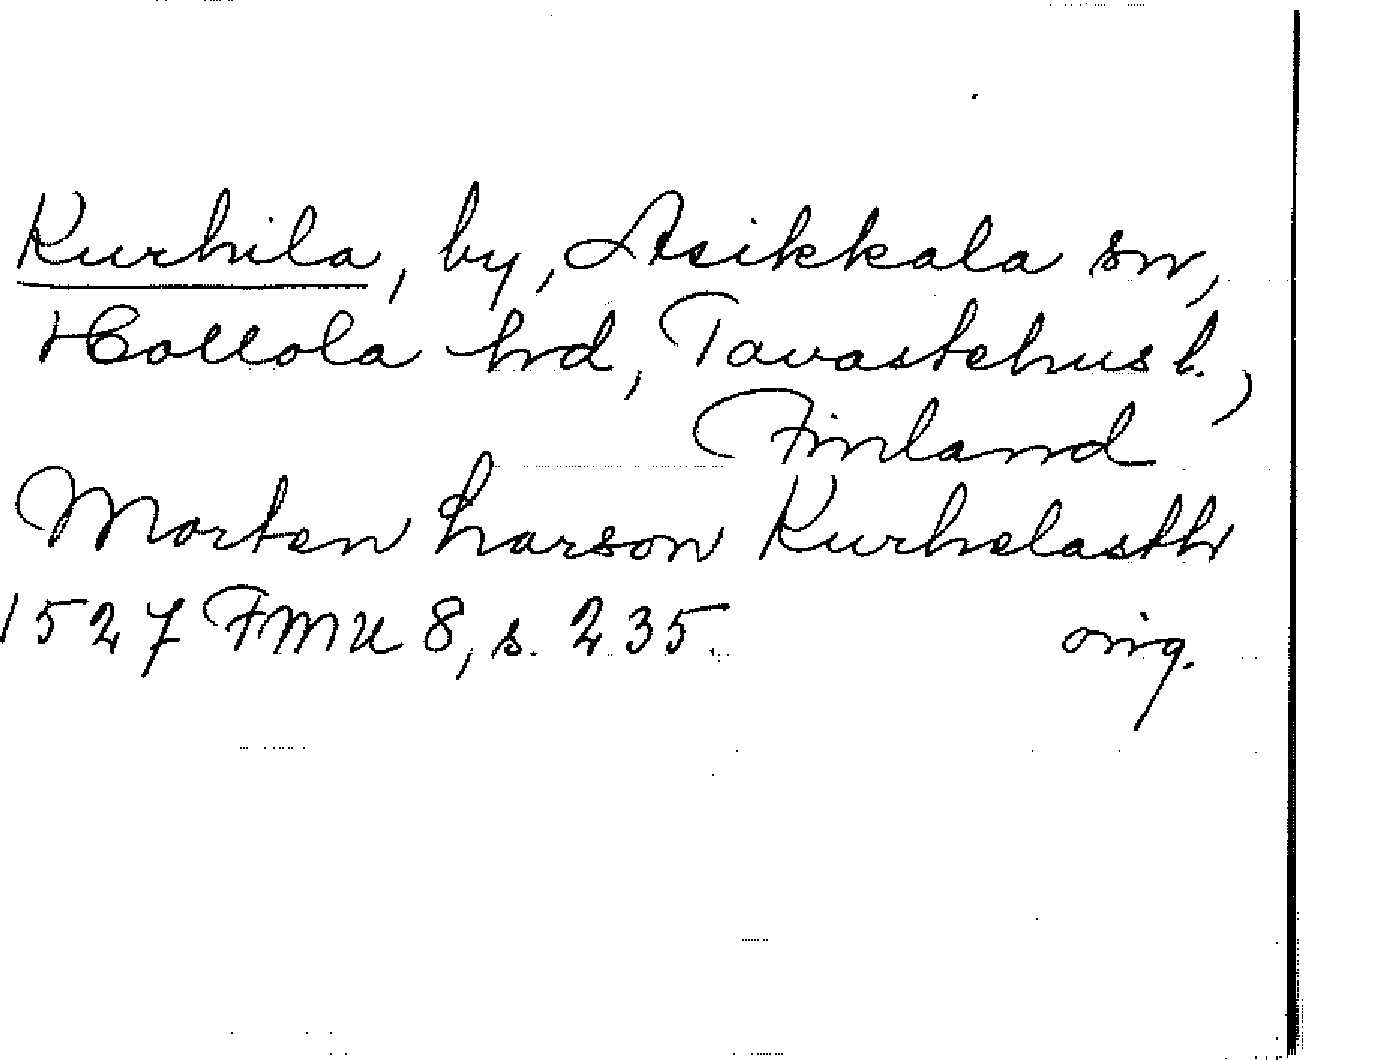 Kurhila, by, Asikkala sn,
Hollola hrd, Tavastehus l.,
Finland
Morten Larson Kurhelasth
1527 FMU 8, s. 235 orig.